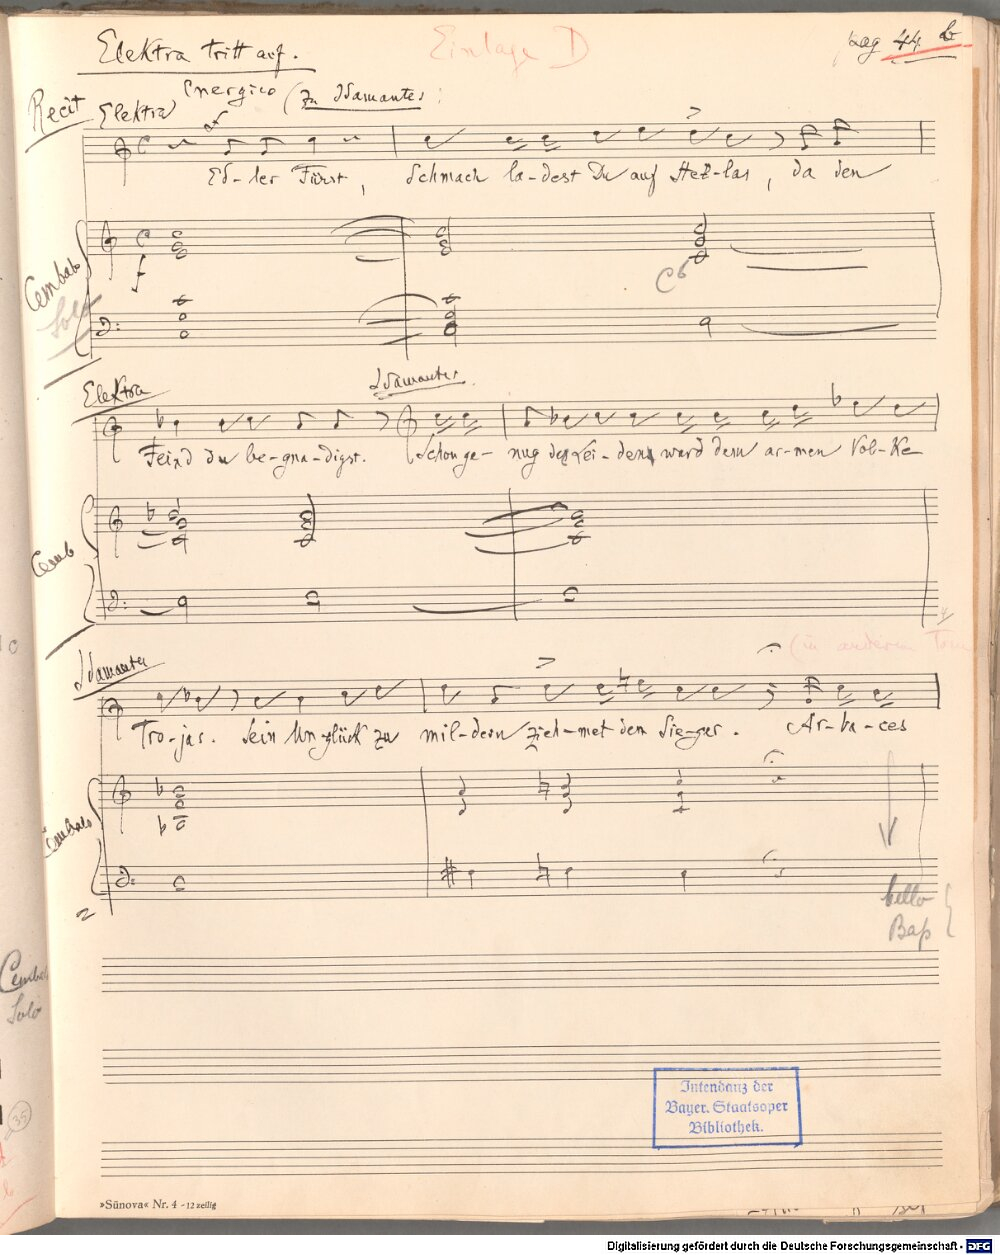 Elektra tritt auf.
Einlage D
pag 44 b
Recit
Elektra
Energico (zu Idamantes:
Ed-ler Fürst, Schmach la-dest Du auf Hel-las, da den
Cembalo
Solo
f
C6
Elektra
Idamantes.
Feind du be-gna-digst. Schon ge-nug der Lei-den ward dem ar-men Vol-ke
Cemb
(in anderem Ton
Idamantes
Tro-jas. Sein Un-glück zu mil-dern zieh-met dem Sie-ger. Ar-ba-ces
Cembalo
Cello
Baß
Cembalo
Solo
35
Intendanz der
Bayer. Staatsoper
Bibliothek.
»Sünova« Nr. 4 - 12 zeilig
Digitalisierung gefördert durch die Deutsche Forschungsgemeinschaft - DFG